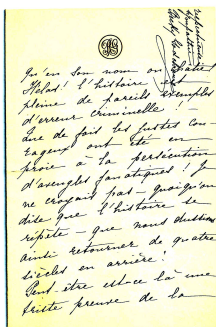 Qu'en son nom on abattit
Hélas! l'histoire est
pleine de pareils exemples
d'erreur criminelle! —
Que de fois les justes cou-
rageux ont été en
proie à la persécution
d'aveugles fanatiques! Je
ne croyais pas — quoiqu'on
dise que l'histoire se
répète — que nous dussions
ainsi retourner de quatre
siècles en arrière!
Peut-être est-ce là une
triste preuve de la